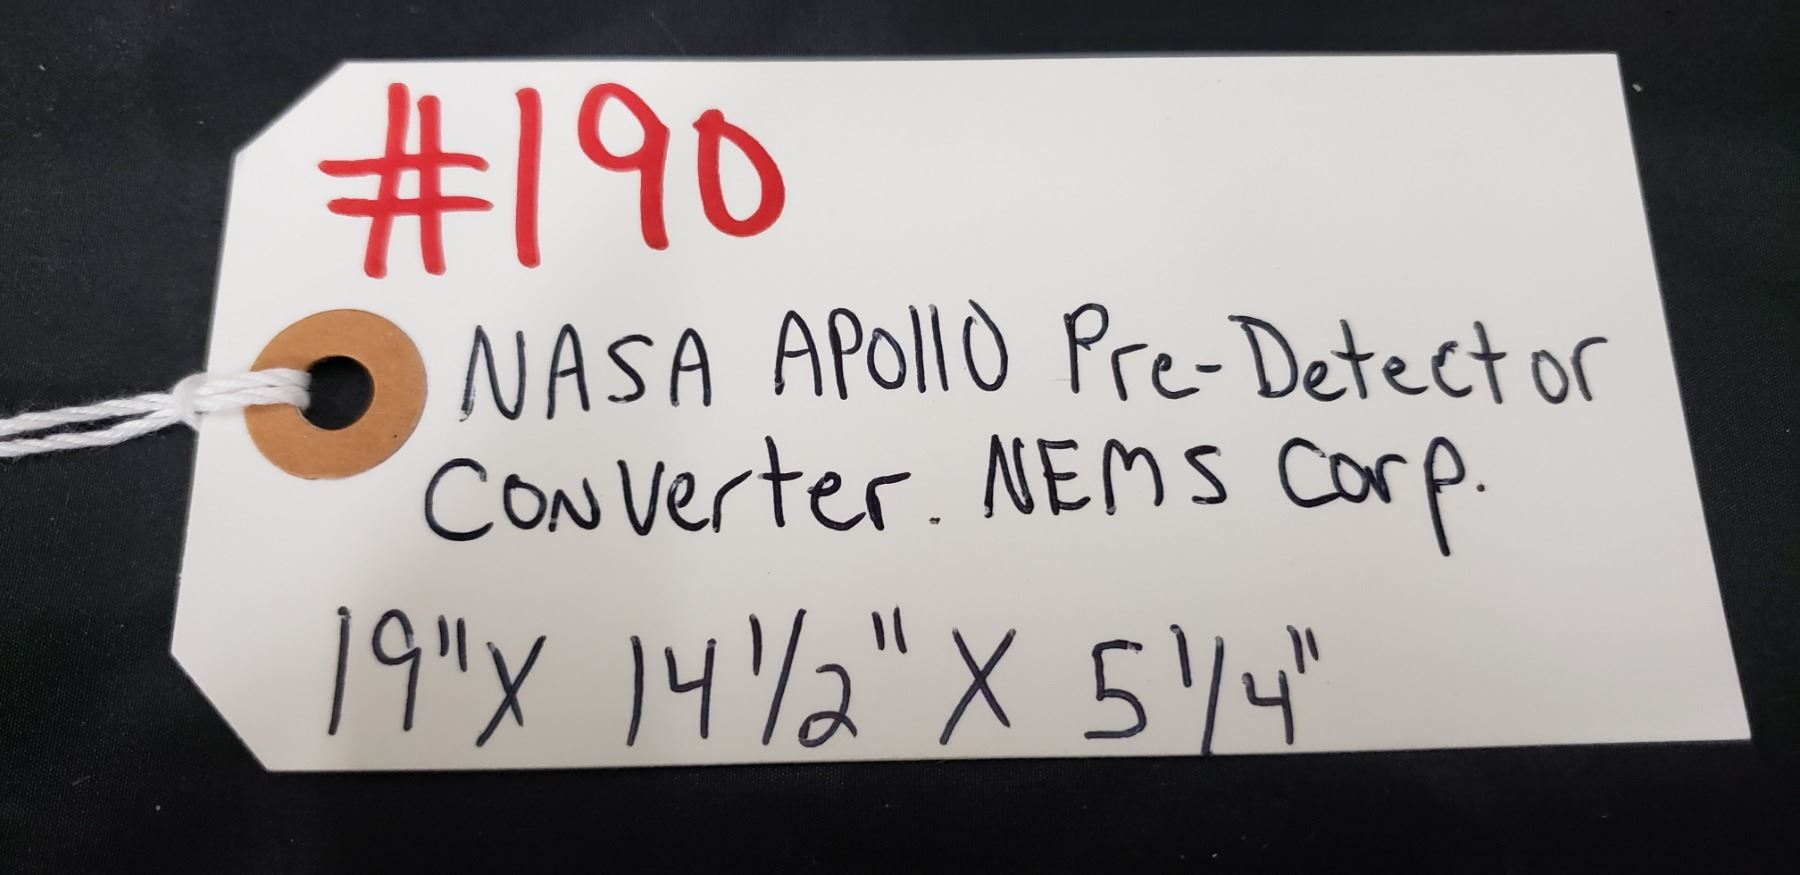 #190
NASA APollO Pre-Detector
Converter. NEMS Corp.
19" X 14 1/2" X 5 1/4"